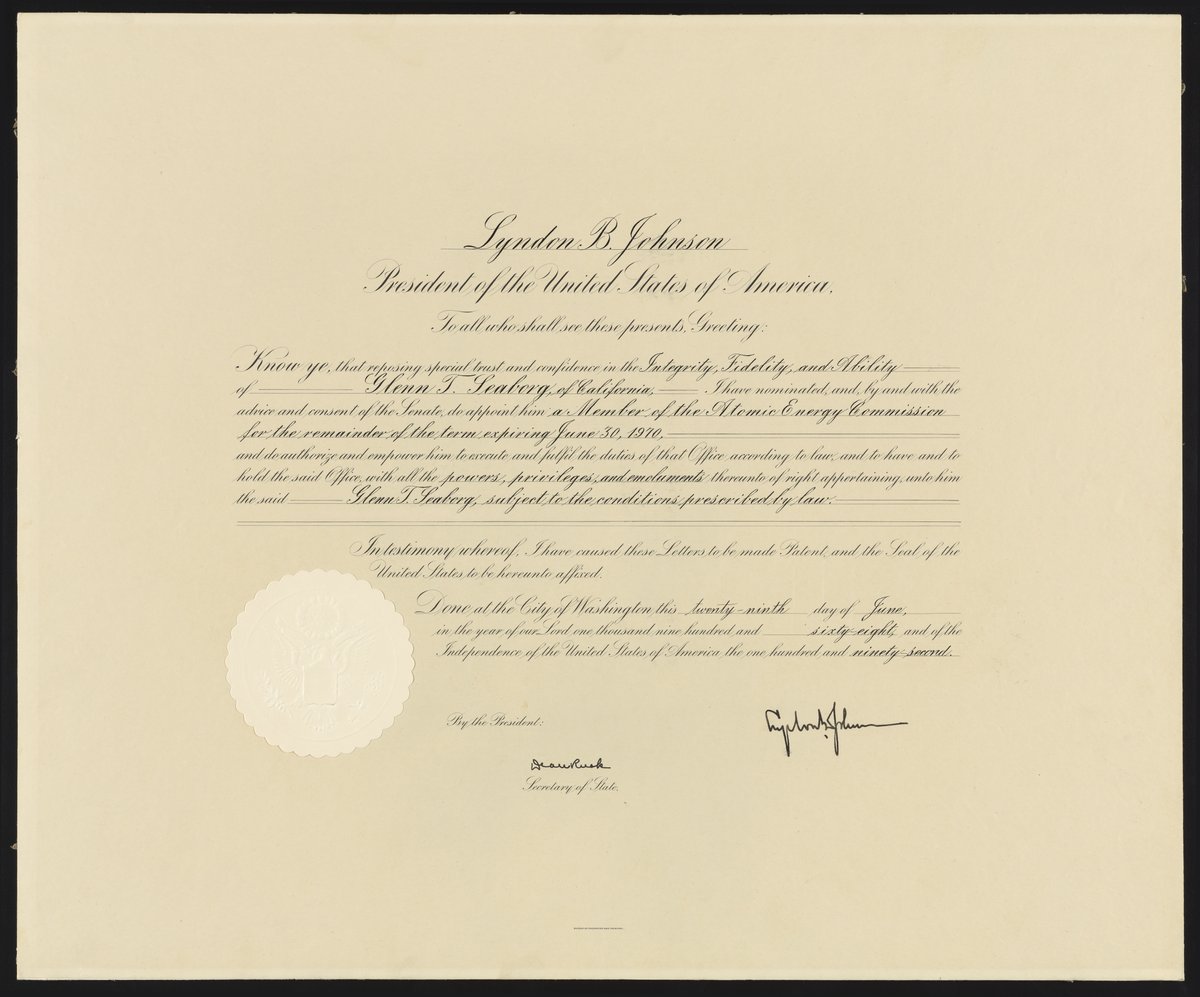 Lyndon B. Johnson
President of the United States of America.
To all who shall see these presents, Greeting:
Know ye, that reposing special trust and confidence in the Integrity, Fidelity, and Ability
of Glenn T. Seaborg, of California, I have nominated, and, by and with the
advice and consent of the Senate, do appoint him a Member of the Atomic Energy Commission
for the remainder of the term expiring June 30, 1970,
and do authorize and empower him to execute and fulfil the duties of that Office according to law, and to have and to
hold the said Office, with all the powers, privileges, and emoluments thereunto of right appertaining, unto him
the said Glenn T. Seaborg, subject to the conditions prescribed by law.
In testimony whereof, I have caused these Letters to be made Patent, and the Seal of the
United States to be hereunto affixed.
Done at the City of Washington this twenty-ninth day of June,
in the year of our Lord one thousand nine hundred and sixty-eight, and of the
Independence of the United States of America the one hundred and ninety-second.
By the President:
Lyndon B. Johnson
Dean Rusk
Secretary of State.